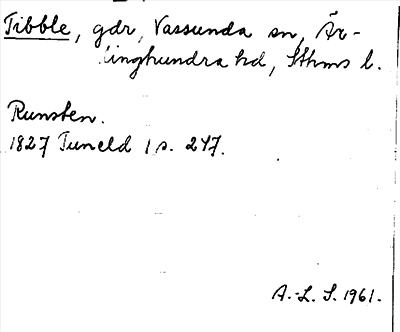 Tibble, gdr, Vassunda sn, Är-
linghundra hd, Sthms l.
Runsten.
1827 Tuneld 1 s. 247.
A.-L. S. 1961.